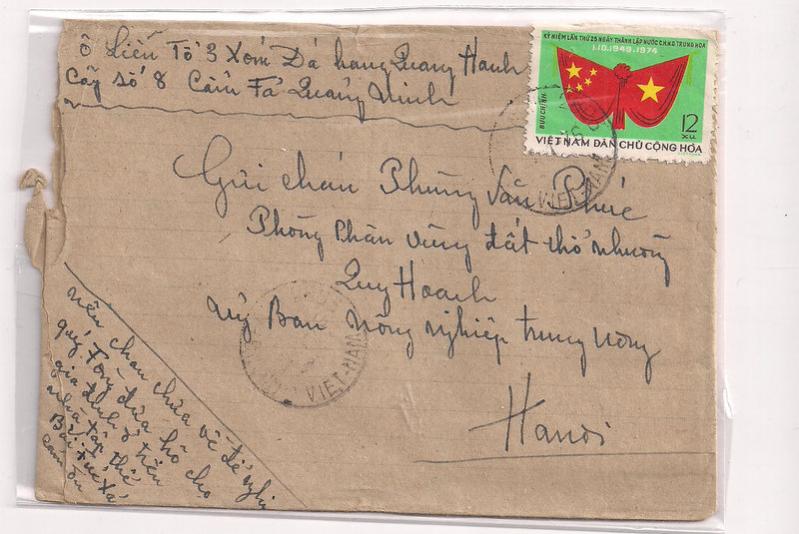 ô Liến Tổ 3 Xóm Đá hang Quang Hanh
Cây số 8 Cẩm Fả Quảng Ninh
KỶ NIỆM LẦN THỨ 25 NGÀY THÀNH LẬP NƯỚC C.H.N.D TRUNG HOA
1.10.1949-1974
BƯU CHÍNH
12
XU
VIỆT NAM DÂN CHỦ CỘNG HÒA
VIET-NAM
Gửi cháu Phùng Văn Phúc
Phòng Phân vùng đất thổ nhưỡng
Quy Hoạch
Uỷ Ban Nông nghiệp trung ương
Hanoi
VIET-NAM
nếu cháu chưa về đề nghị
quý đưa hộ cho
gia đình ở trên
nhà tập thể
cảm ơn